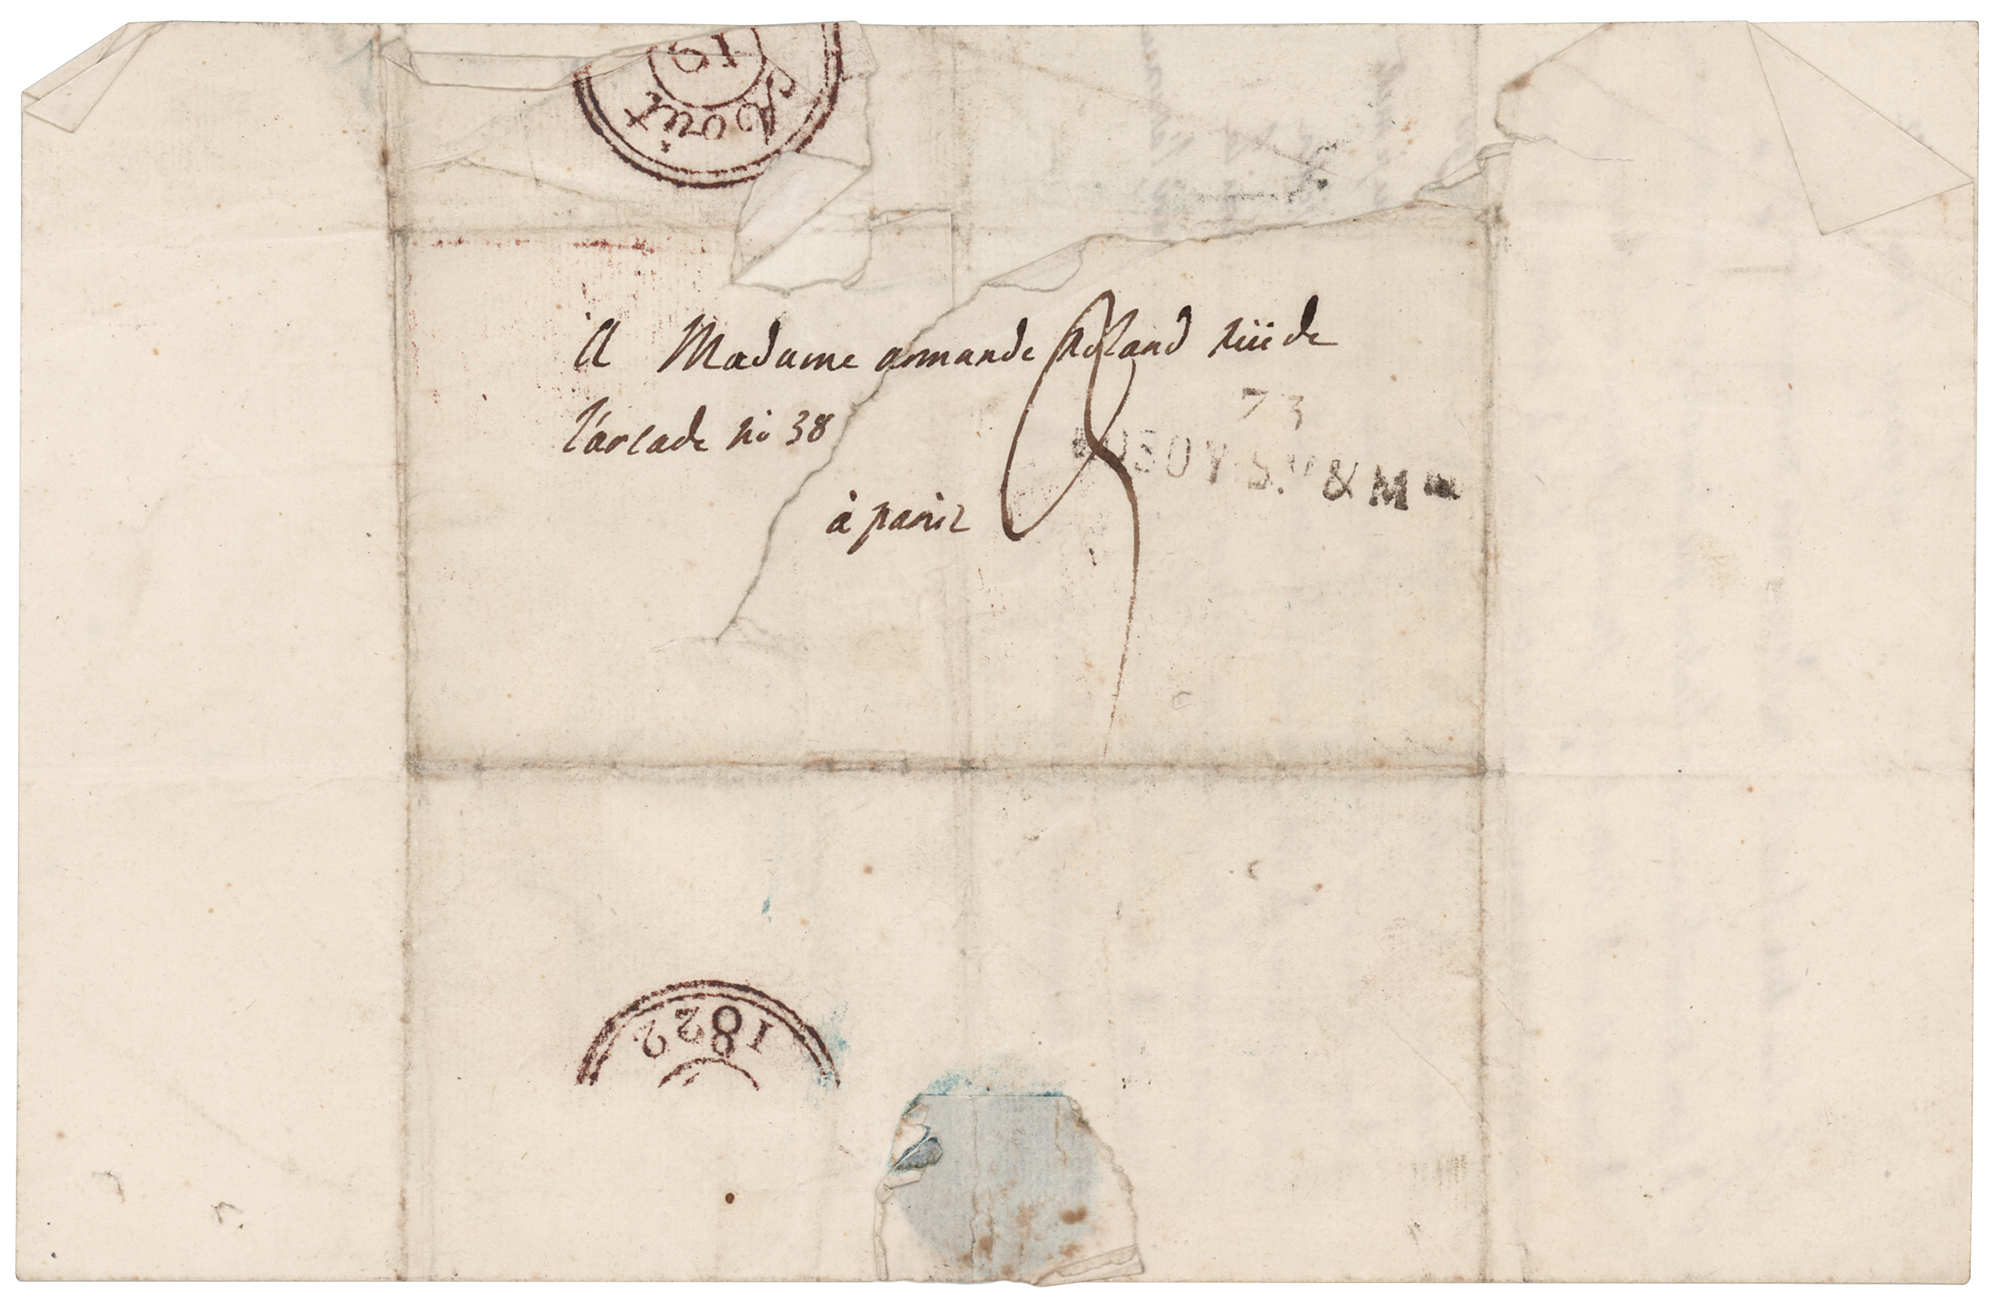 19
Août
A Madame armande Roland rüe de
l'arcade no 38
à paris
73
ROSOY-S.N & M
1822